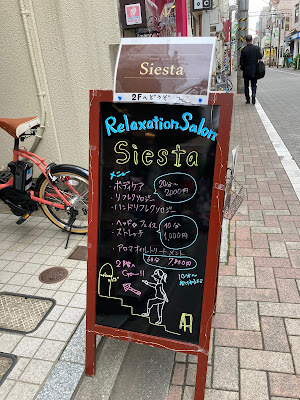 Siesta
2Fへどうぞ
Relaxation Salon
Siesta
メニュー
・ボディケア
・リフレクソロジー
・ハンドリフレクソロジー
20分〜
2,000円
・ヘッド&フェイス
・ストレッチ
10分
1,000円
・アロマオイルトリートメント
60分 7,800円
2階へ
Go〜!!
10分〜